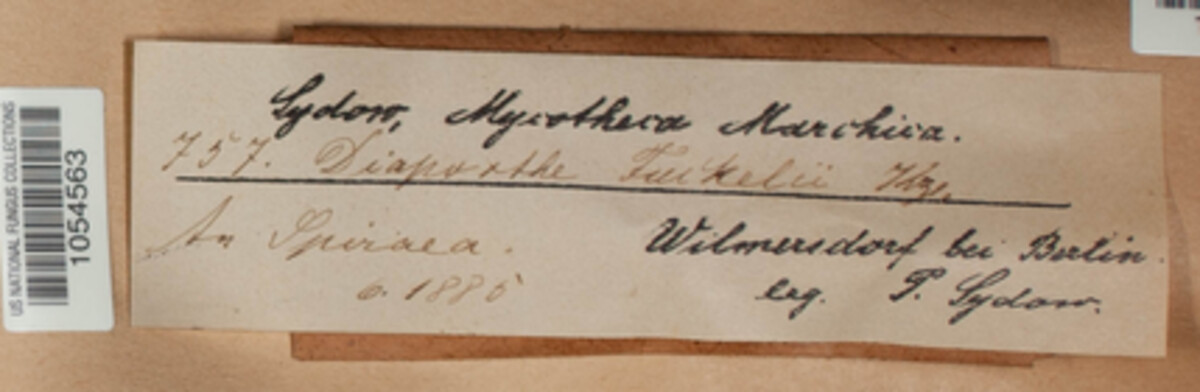 Sydow, Mycotheca Marchica.
757. Diaporthe Fuckelii Kze.
An Spiraea.
Wilmersdorf bei Berlin.
6. 1885
leg. P. Sydow.
US NATIONAL FUNGUS COLLECTIONS
10154563